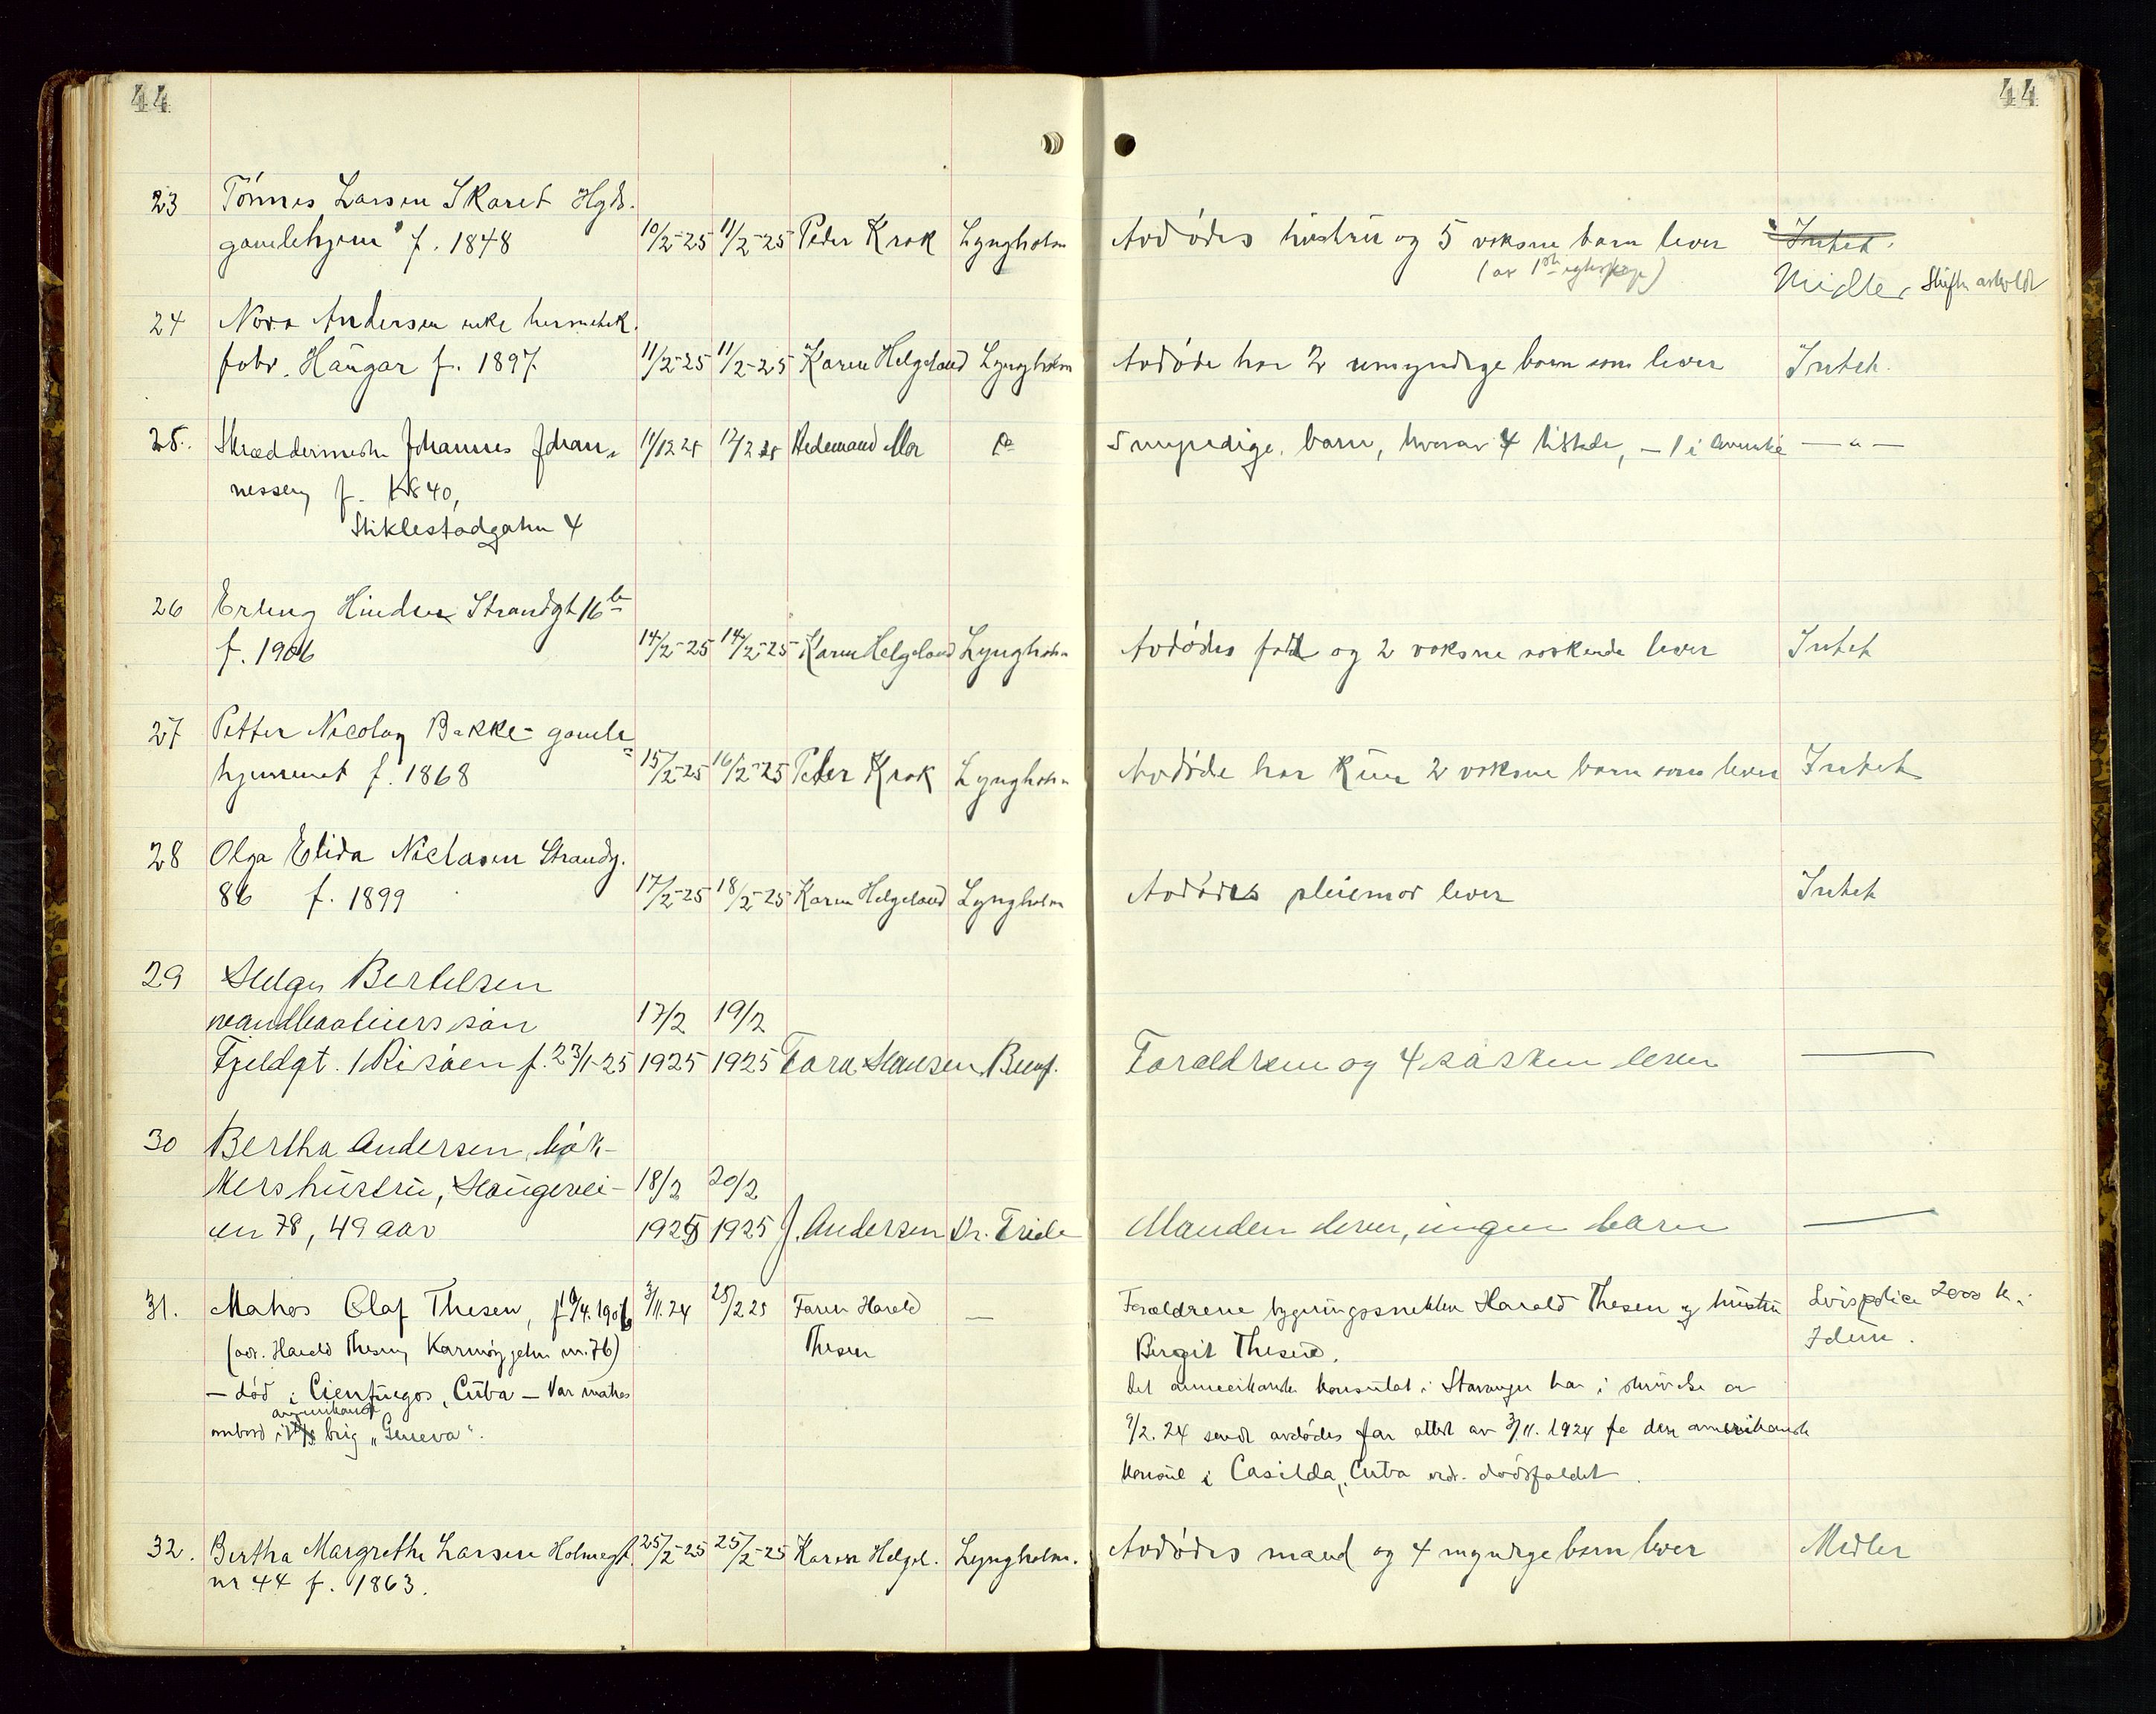 44
44
23 Tönnes Larsen Skaret Hgds.
gamlehjem f. 1848 10/2-25 11/2-25 Peder Krok Lyngholm Avdödes hüstrü og 5 voksne barn lever Intet.
(av 1ste egteskap) Midler, Skifte avholdt
24 Nora Andersen enke hermetik.
fabr. Haugar f. 1897. 11/2-25 11/2-25 Karen Helgeland Lyngholm Avdöde har 2 umyndige barn som lever Intet.
25. Skræddermester Johannes Johan-
nessen f. 1840, 11/12 25 12/2 25 Hedemand do 5 myndige barn, hvorav 4 tilstede, - 1 i Amerika — " —
Stiklestadgaten 4
26 Erling Strandgt 16b
f. 1906 14/2-25 14/2-25 Karen Helgeland Lyngholm Avdödes far og 2 voksne söskende lever Intet
27 Petter Nicolay Bakke - gamle
hjemmet f. 1868 15/2-25 16/2-25 Peder Krok Lyngholm Avdöde har kün 2 voksne barn som lever Intet
28 Olga Elida Nielasen Strandg.
86 f. 1899 17/2-25 18/2-25 Karen Helgeland Lyngholm Avdödes pleiemor lever Intet
29 Helga Bertelsen
vandbaatiers sön 17/2 19/2
Fjeldgt. 1 Risöen f. 23/1-25 1925 1925 Tora Hansen Forældrene og 4 søsken lever —
30 Bertha Andersen, bök-
kers hüstrü, Haügevei- 18/2 20/2
en 78, 49 aar 1925 1925 J. Andersen Manden lever, ingen barn —
31. Mathes Olaf Thesen, f 19/4.1906 3/11.24 25/2 25 Faren Harald — Forældrene bygningssnekker Harald Thesen og hüstrü Livspolice 2000 kr.
(adr. Harald Thesen, Karmöygaten nr. 76) Thesen Birgit Thesen. Idün.
— död i Cienfuegos, Cüba — Var matros det amerikanske konsülat i Stavanger har i skrivelse av
amerikansk
ombord i brig "Geneva". 9/2. 24 sendt avdödes far attest av 3/11. 1924 fra den amerikanske
konsül i Casilda, Cuba vedr. dödsfaldet.
32. Bertha Margrethe Larsen Holmegt. 25/2-25 25/2-25 Karen Helgel. Lyngholm. Avdödes mand og 4 myndige barn lever Midler
nr 44 f. 1863.